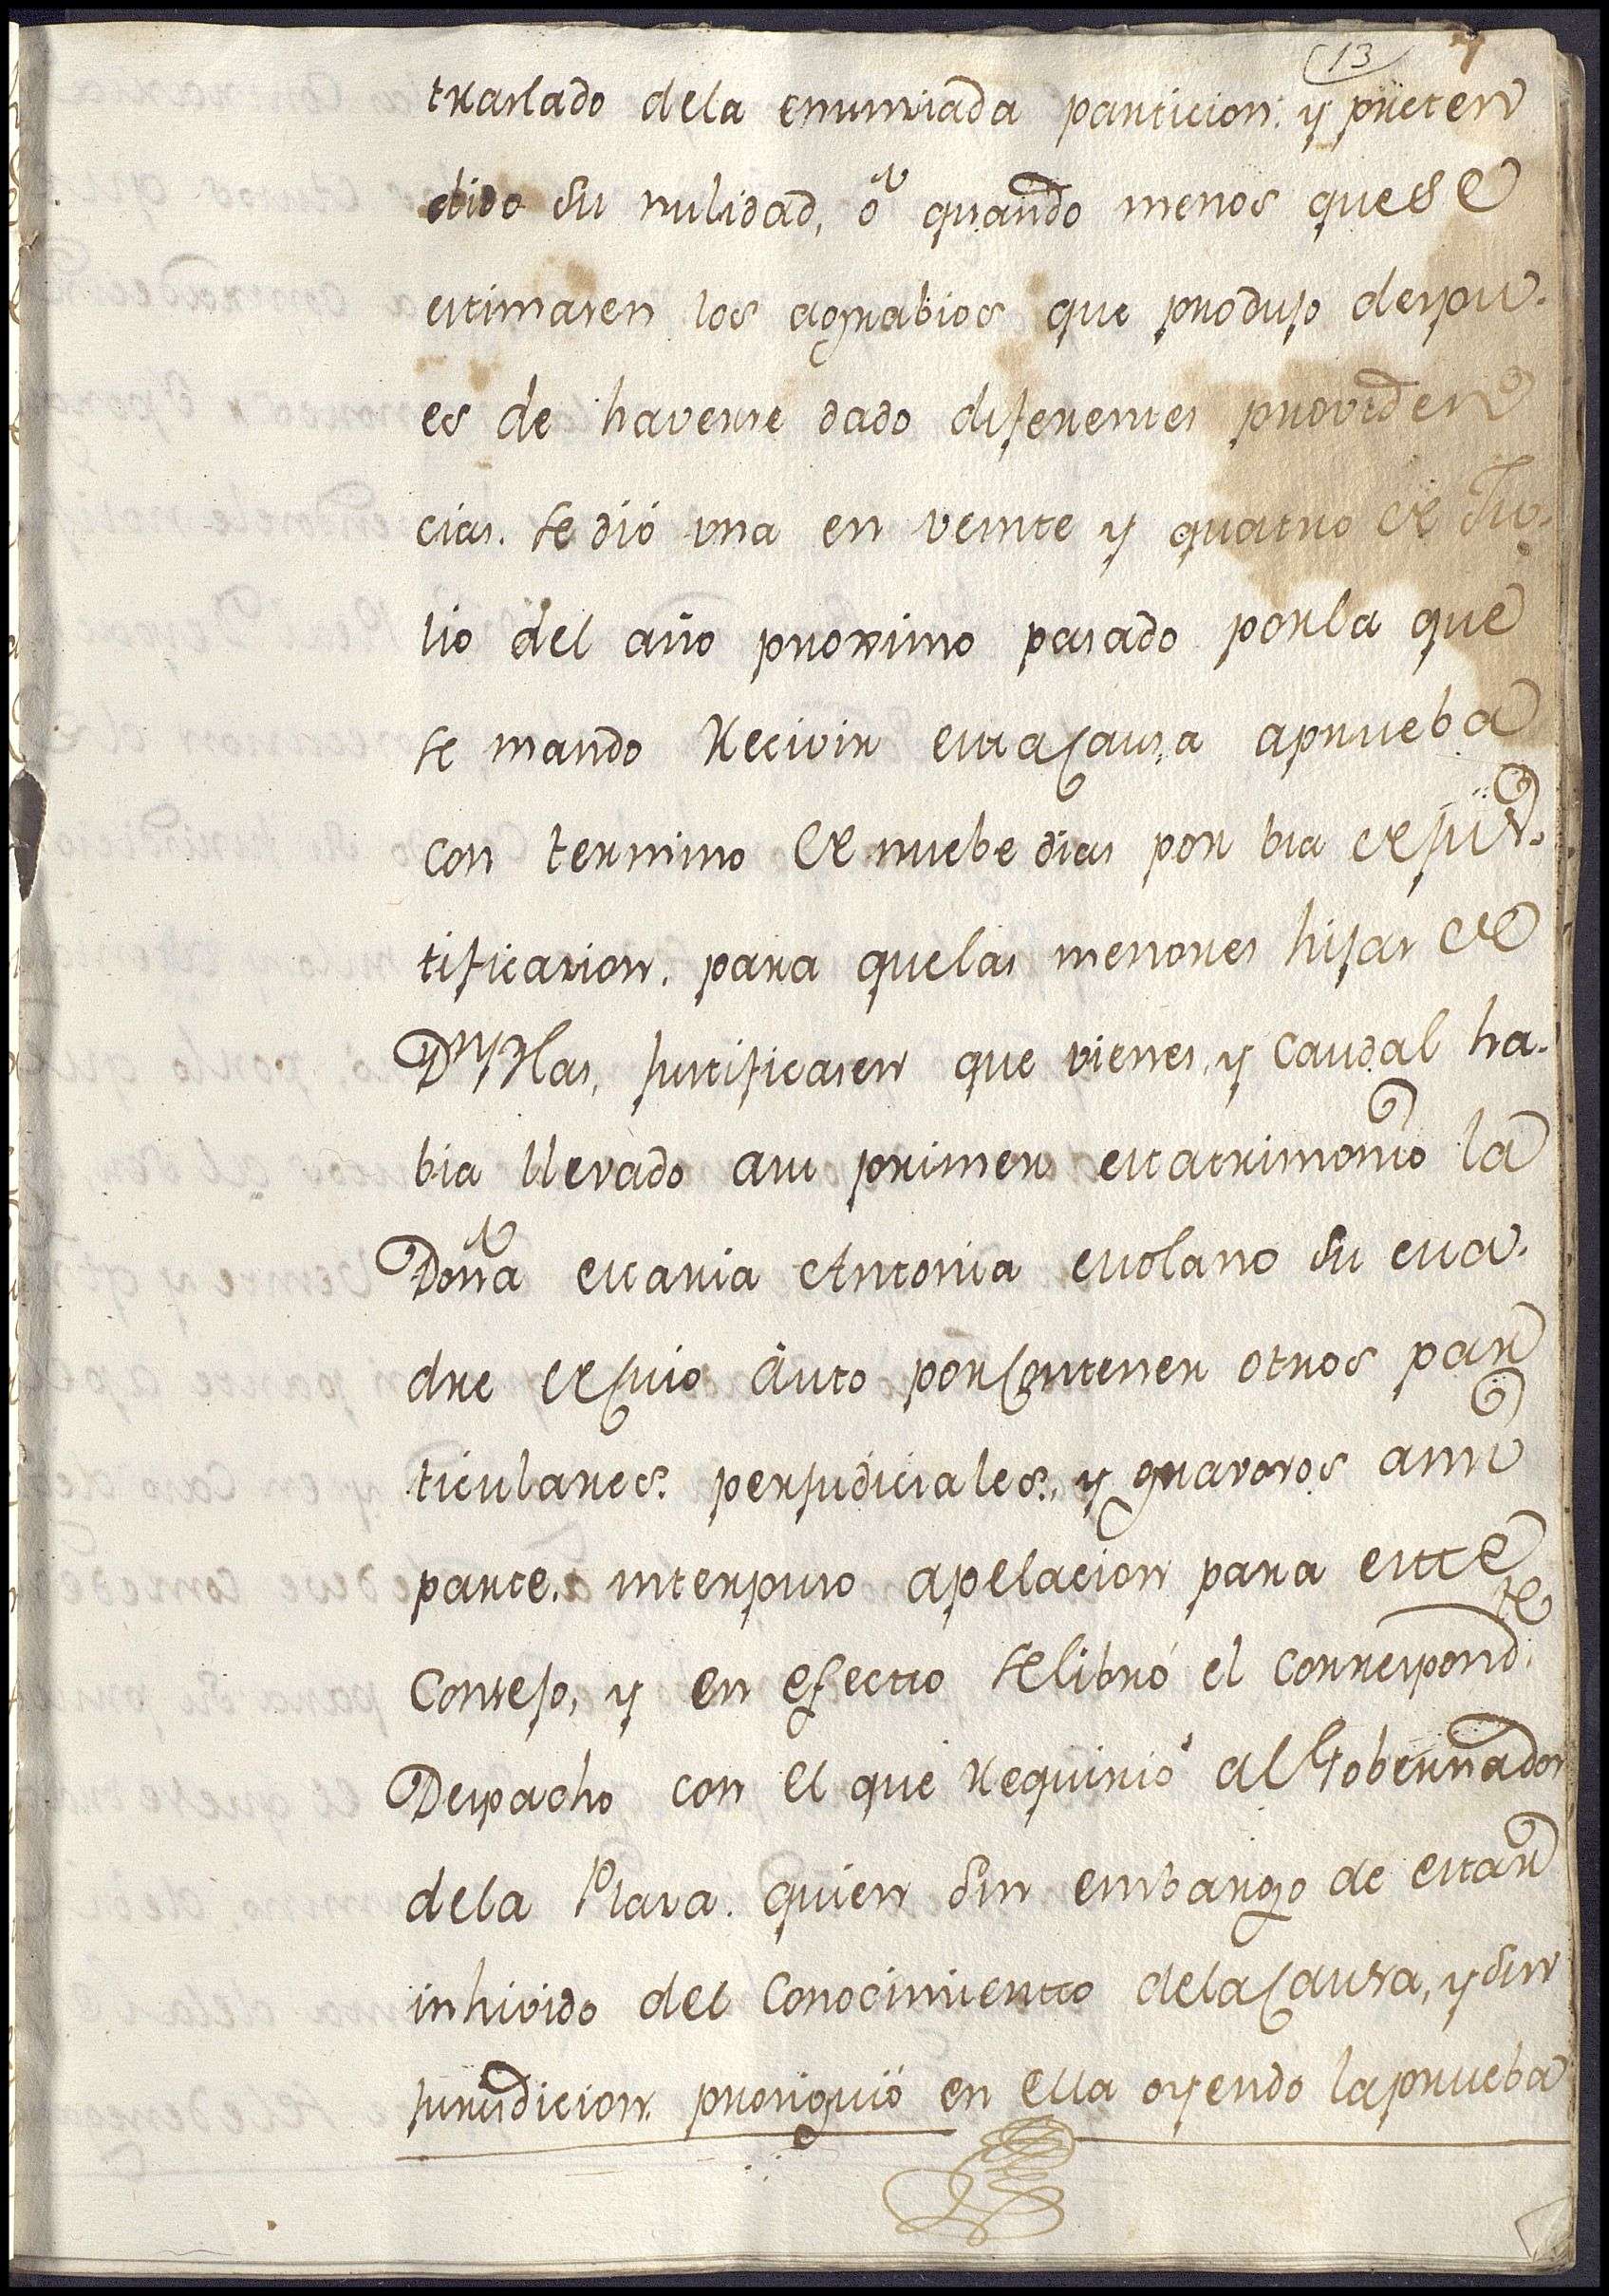 13
traslado dela enunciada particion, y preten
dido su nulidad, ó quando menos quese
estimasen los agrabios que produjo despu.
es de haverse dado diferentes providen
cias. se dió una en veinte y quatro de Ju.
lio del año proximo pasado porla que
se mando Recivir esta Causa aprueba
con termino de nuebe dias por bia de jus.
tificazion. para quelas menores hijas de
Dn Blas, justificasen que vienes, y Caudal ha.
bia llevado asu primer Matrimonio la
Doña Maria Antonia Molano su Ma.
dre de cuio auto por Contener otros par
ticulares. perjudiciales, y gravosos ami
parte. interpuso apelacion para este
Consejo, y en efecto selibró el correspond.te
Despacho con el que Requirió al Gobernador
dela Plaza. quien sin embargo de estar
inhivido del Conocimiento dela Causa, y sin
jurisdicion. prosiguió en ella oyendo laprueba